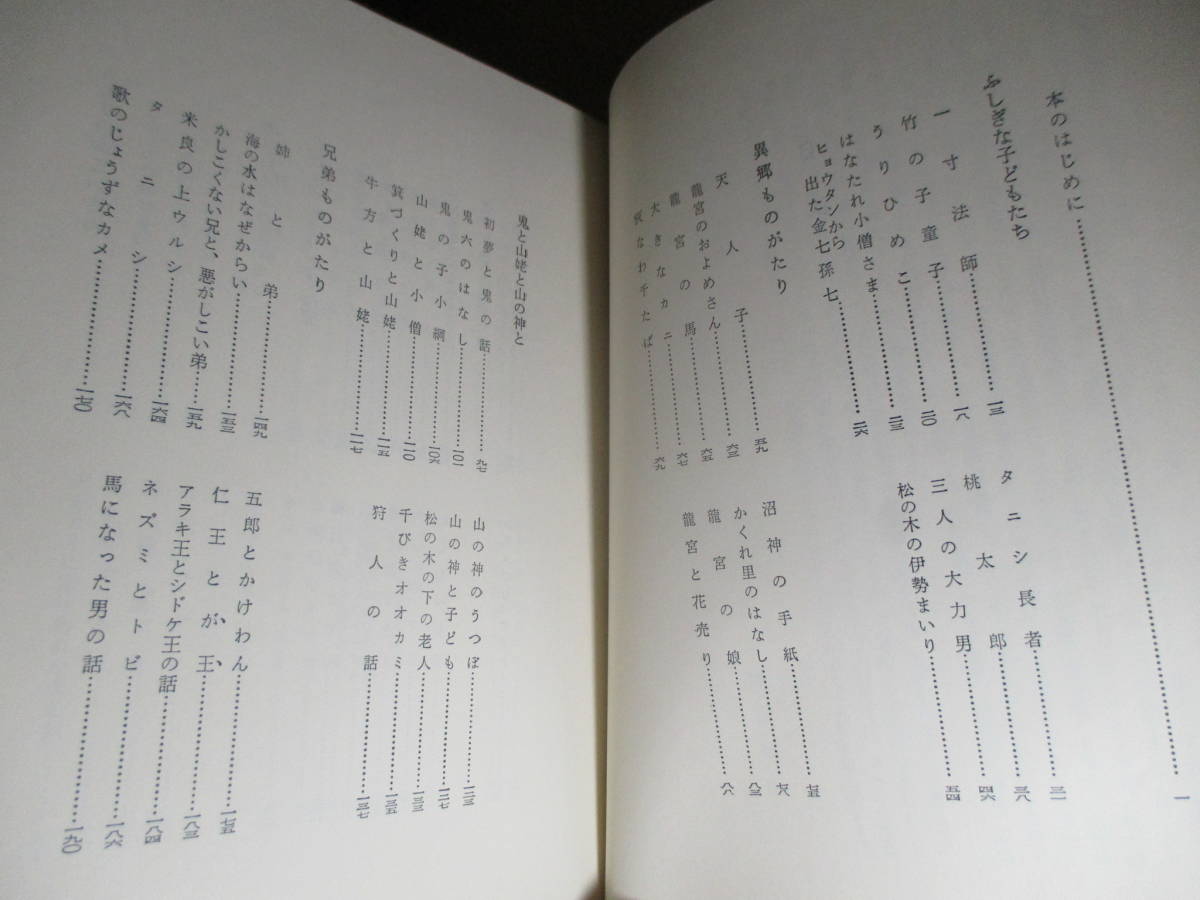 本のはじめに……一
ふしぎな子どもたち
一寸法師……一三
竹の子童子……一八
うりひめこ……二〇
はなたれ小僧さま……二三
ヒョウタンから
出た金七孫七……二六
タニシ長者……三一
桃太郎……三八
三人の大力男……四六
松の木の伊勢まいり……五四
異郷ものがたり
天人子……五九
龍宮のおよめさん……六三
龍宮の馬……六五
大きなカニ……六七
灰なわ千たば……六九
沼神の手紙……七五
かくれ里のはなし……七八
龍宮の娘……八三
龍宮と花売り……八八
鬼と山姥と山の神と
初夢と鬼の話……九七
鬼六のはなし……一〇一
鬼の子小綱……一〇六
山姥と小僧……一一〇
箕づくりと山姥……一一五
牛方と山姥……一一七
山の神のうつぼ……一二三
山の神と子ども……一二七
松の木の下の老人……一三三
千びきオオカミ……一三五
狩人の話……一三七
兄弟ものがたり
姉と弟……一四九
海の水はなぜからい……一五三
かしこくない兄と、悪がしこい弟……一五九
米良の上ウルシ……一六四
タニシ……一六八
歌のじょうずなカメ……一七〇
五郎とかけわん……一七五
仁王とが王……一八三
アラキ王とシドケ王の話……一八四
ネズミとトビ……一八六
馬になった男の話……一九〇